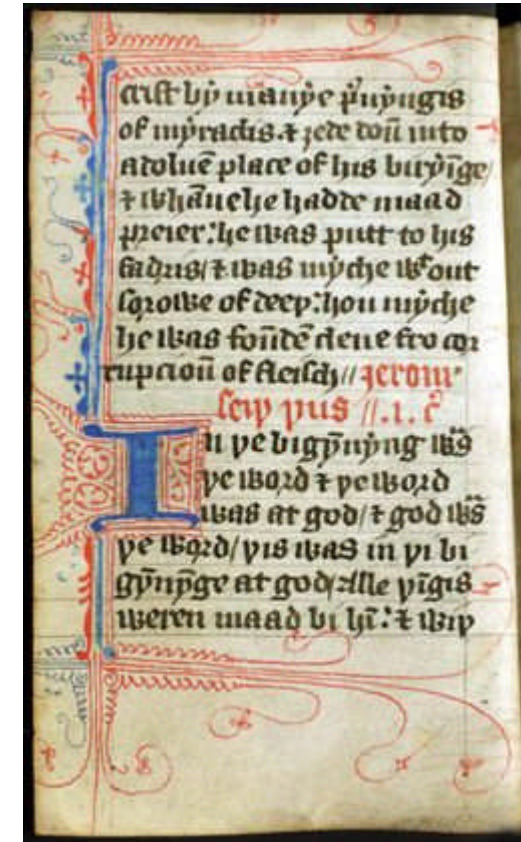 crist bẏ manẏe p̉uẏngis
of mẏraclis. ⁊ ȝede doū into
a doluē place of his buryīge/
⁊ whāne he hadde maad
preier: he was putt to his
fadris/ ⁊ was mẏche wͭout
sorowe of deeþ: hou mẏche
he was foūdē clene fro cor
rupcioū of fleisch // Jerom
seiþ þus //.1. c̊
In þe bigẏn̄ẏng was
þe word ⁊ þe word
was at god/ ⁊ god was
þe word/ þis was in þi bi
gẏn̄ẏge at god/ Alle þīgis
weren maad bi hī: ⁊ wiþ